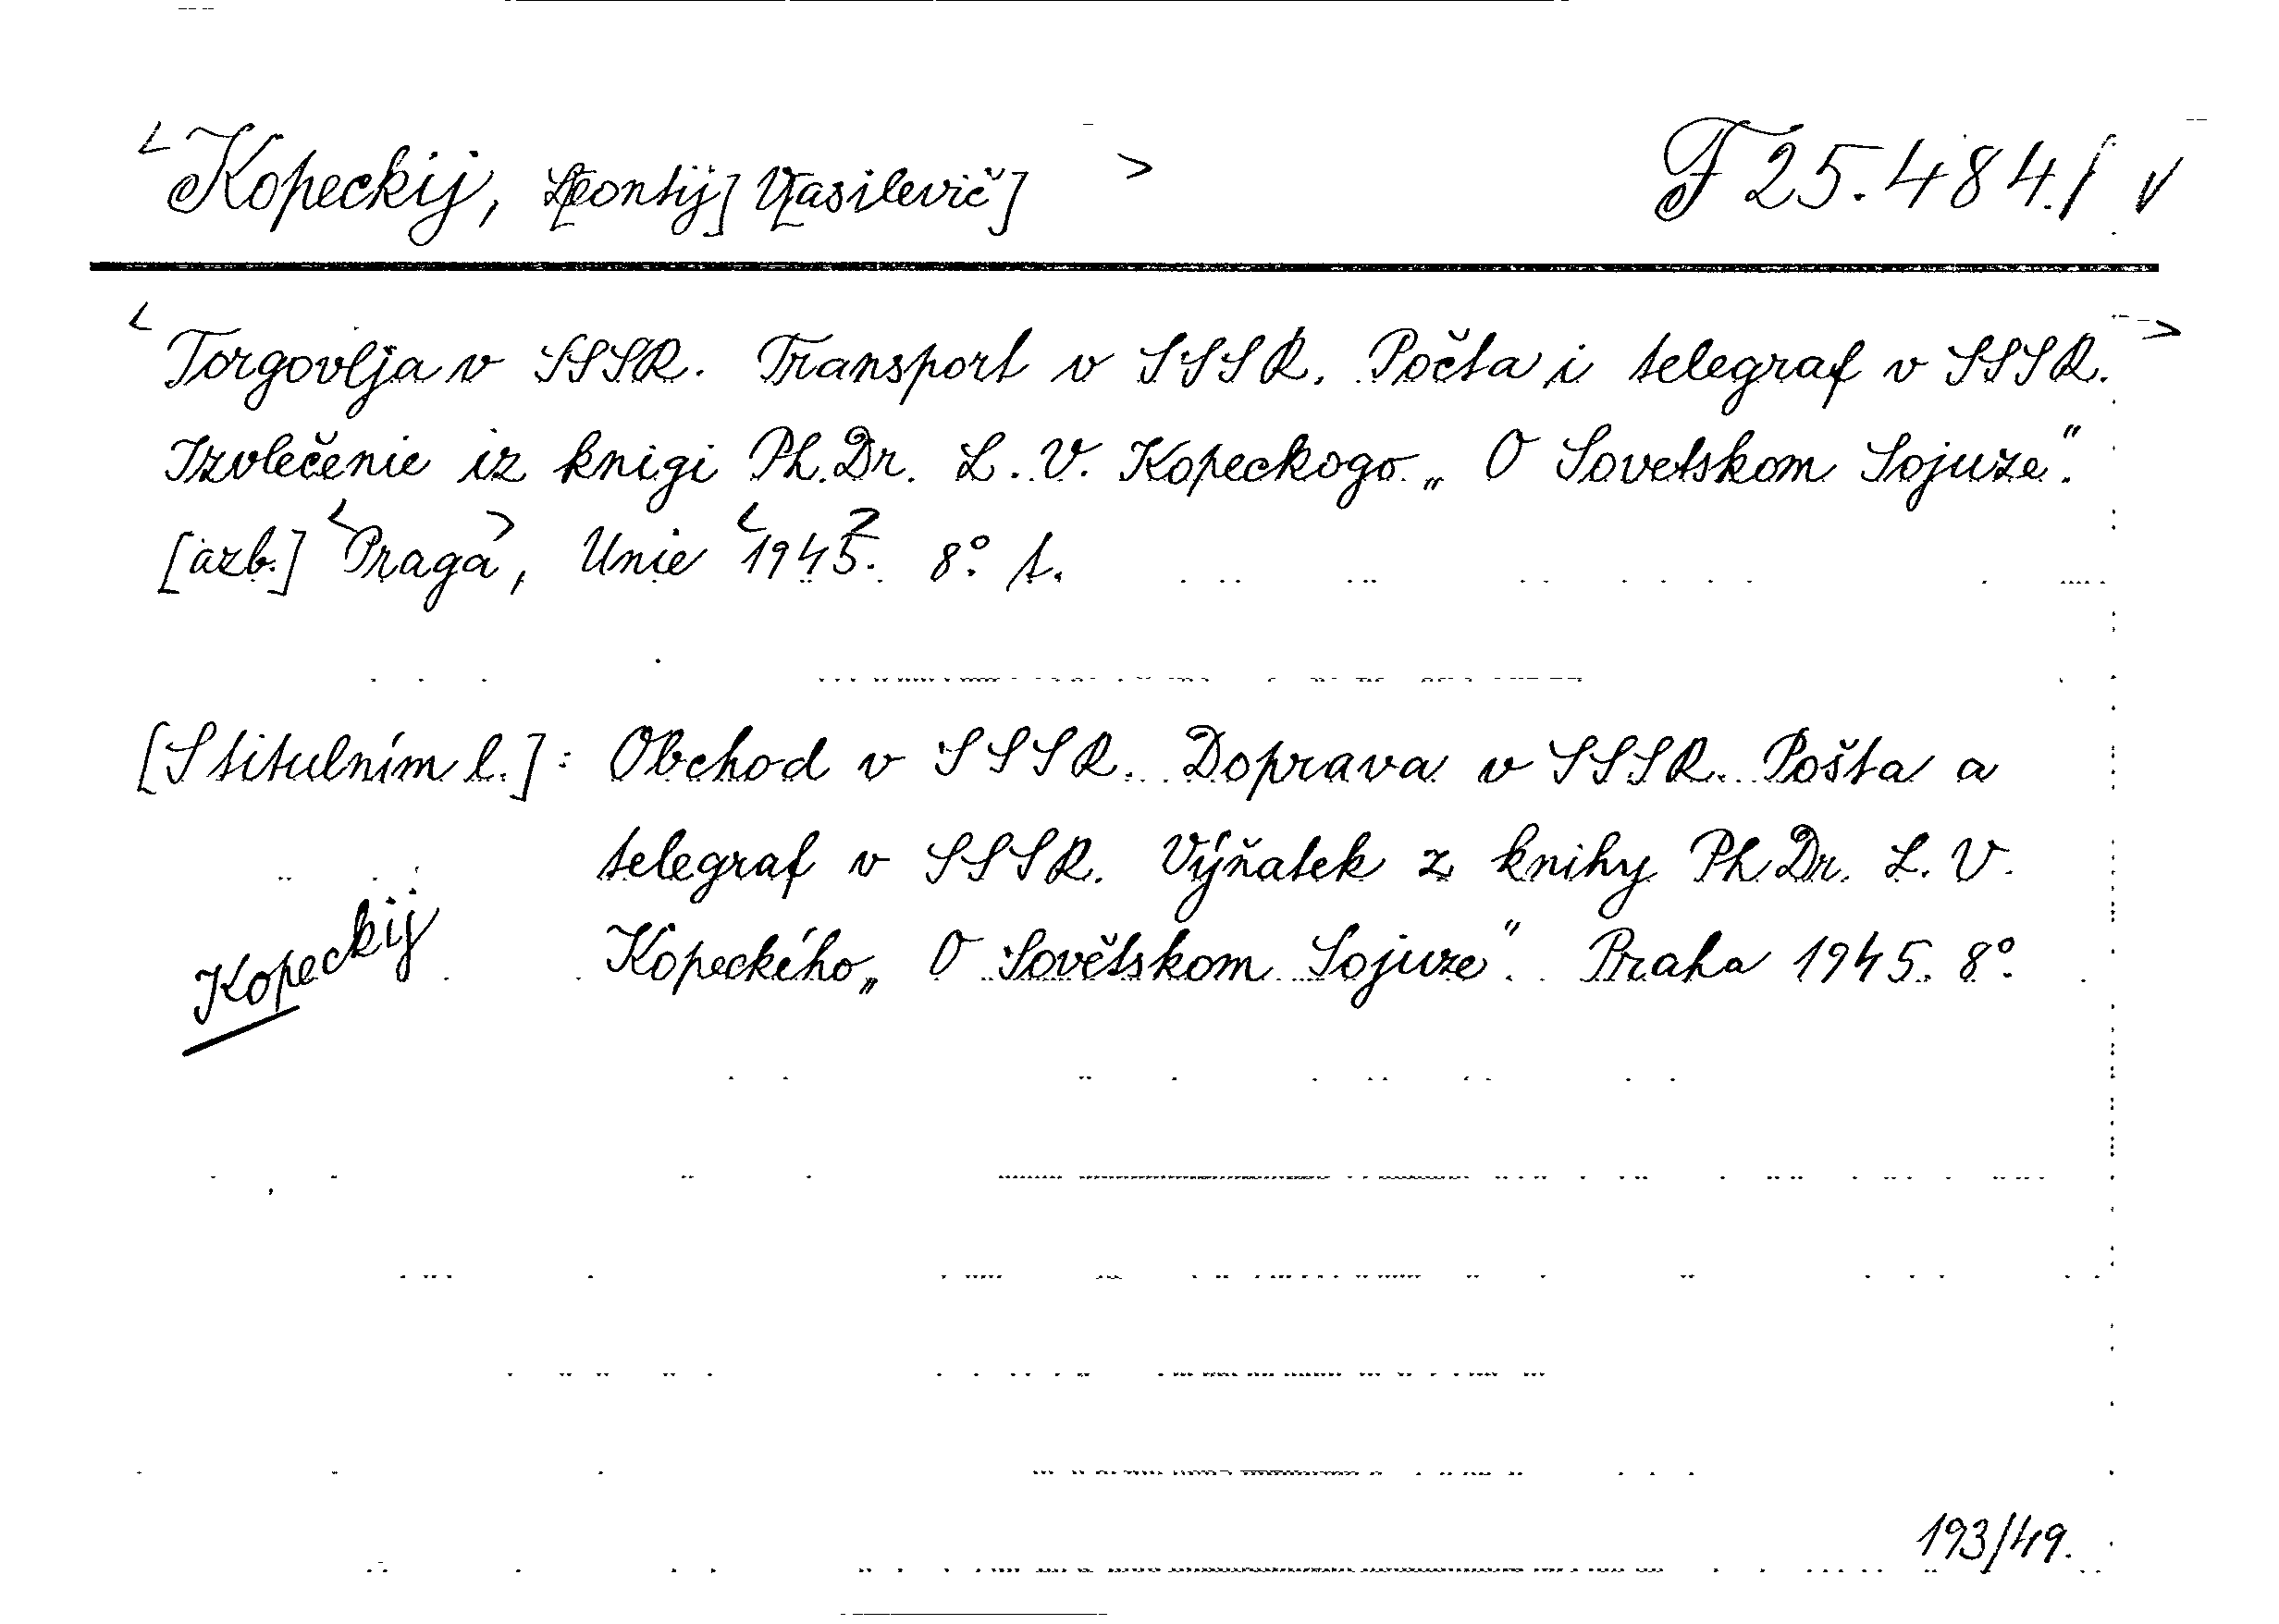 <Kopeckij, L[eontij] V[asilevič] > F 25.484./ v
<Torgovlja v SSSR. Transport v SSSR. Počta i telegraf v SSSR.>
Izvlečenie iz knigi Ph.Dr. L.V. Kopeckogo „O Sovetskom Sojuze".
[azb.] <Praga>, Unie <1945>. 8° s.
[S titulním l.]: Obchod v SSSR. Doprava v SSSR. Pošta a
telegraf v SSSR. Výňatek z knihy PhDr. L.V.
Kopeckého „O Sovětskom Sojuze". Praha 1945. 8°.
Kopeckij
193/49.